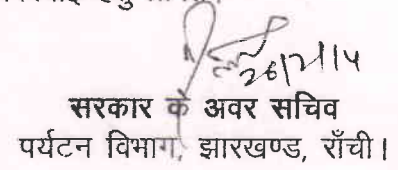 26/2/14
सरकार के अवर सचिव
पर्यटन विभाग, झारखण्ड, राँची।